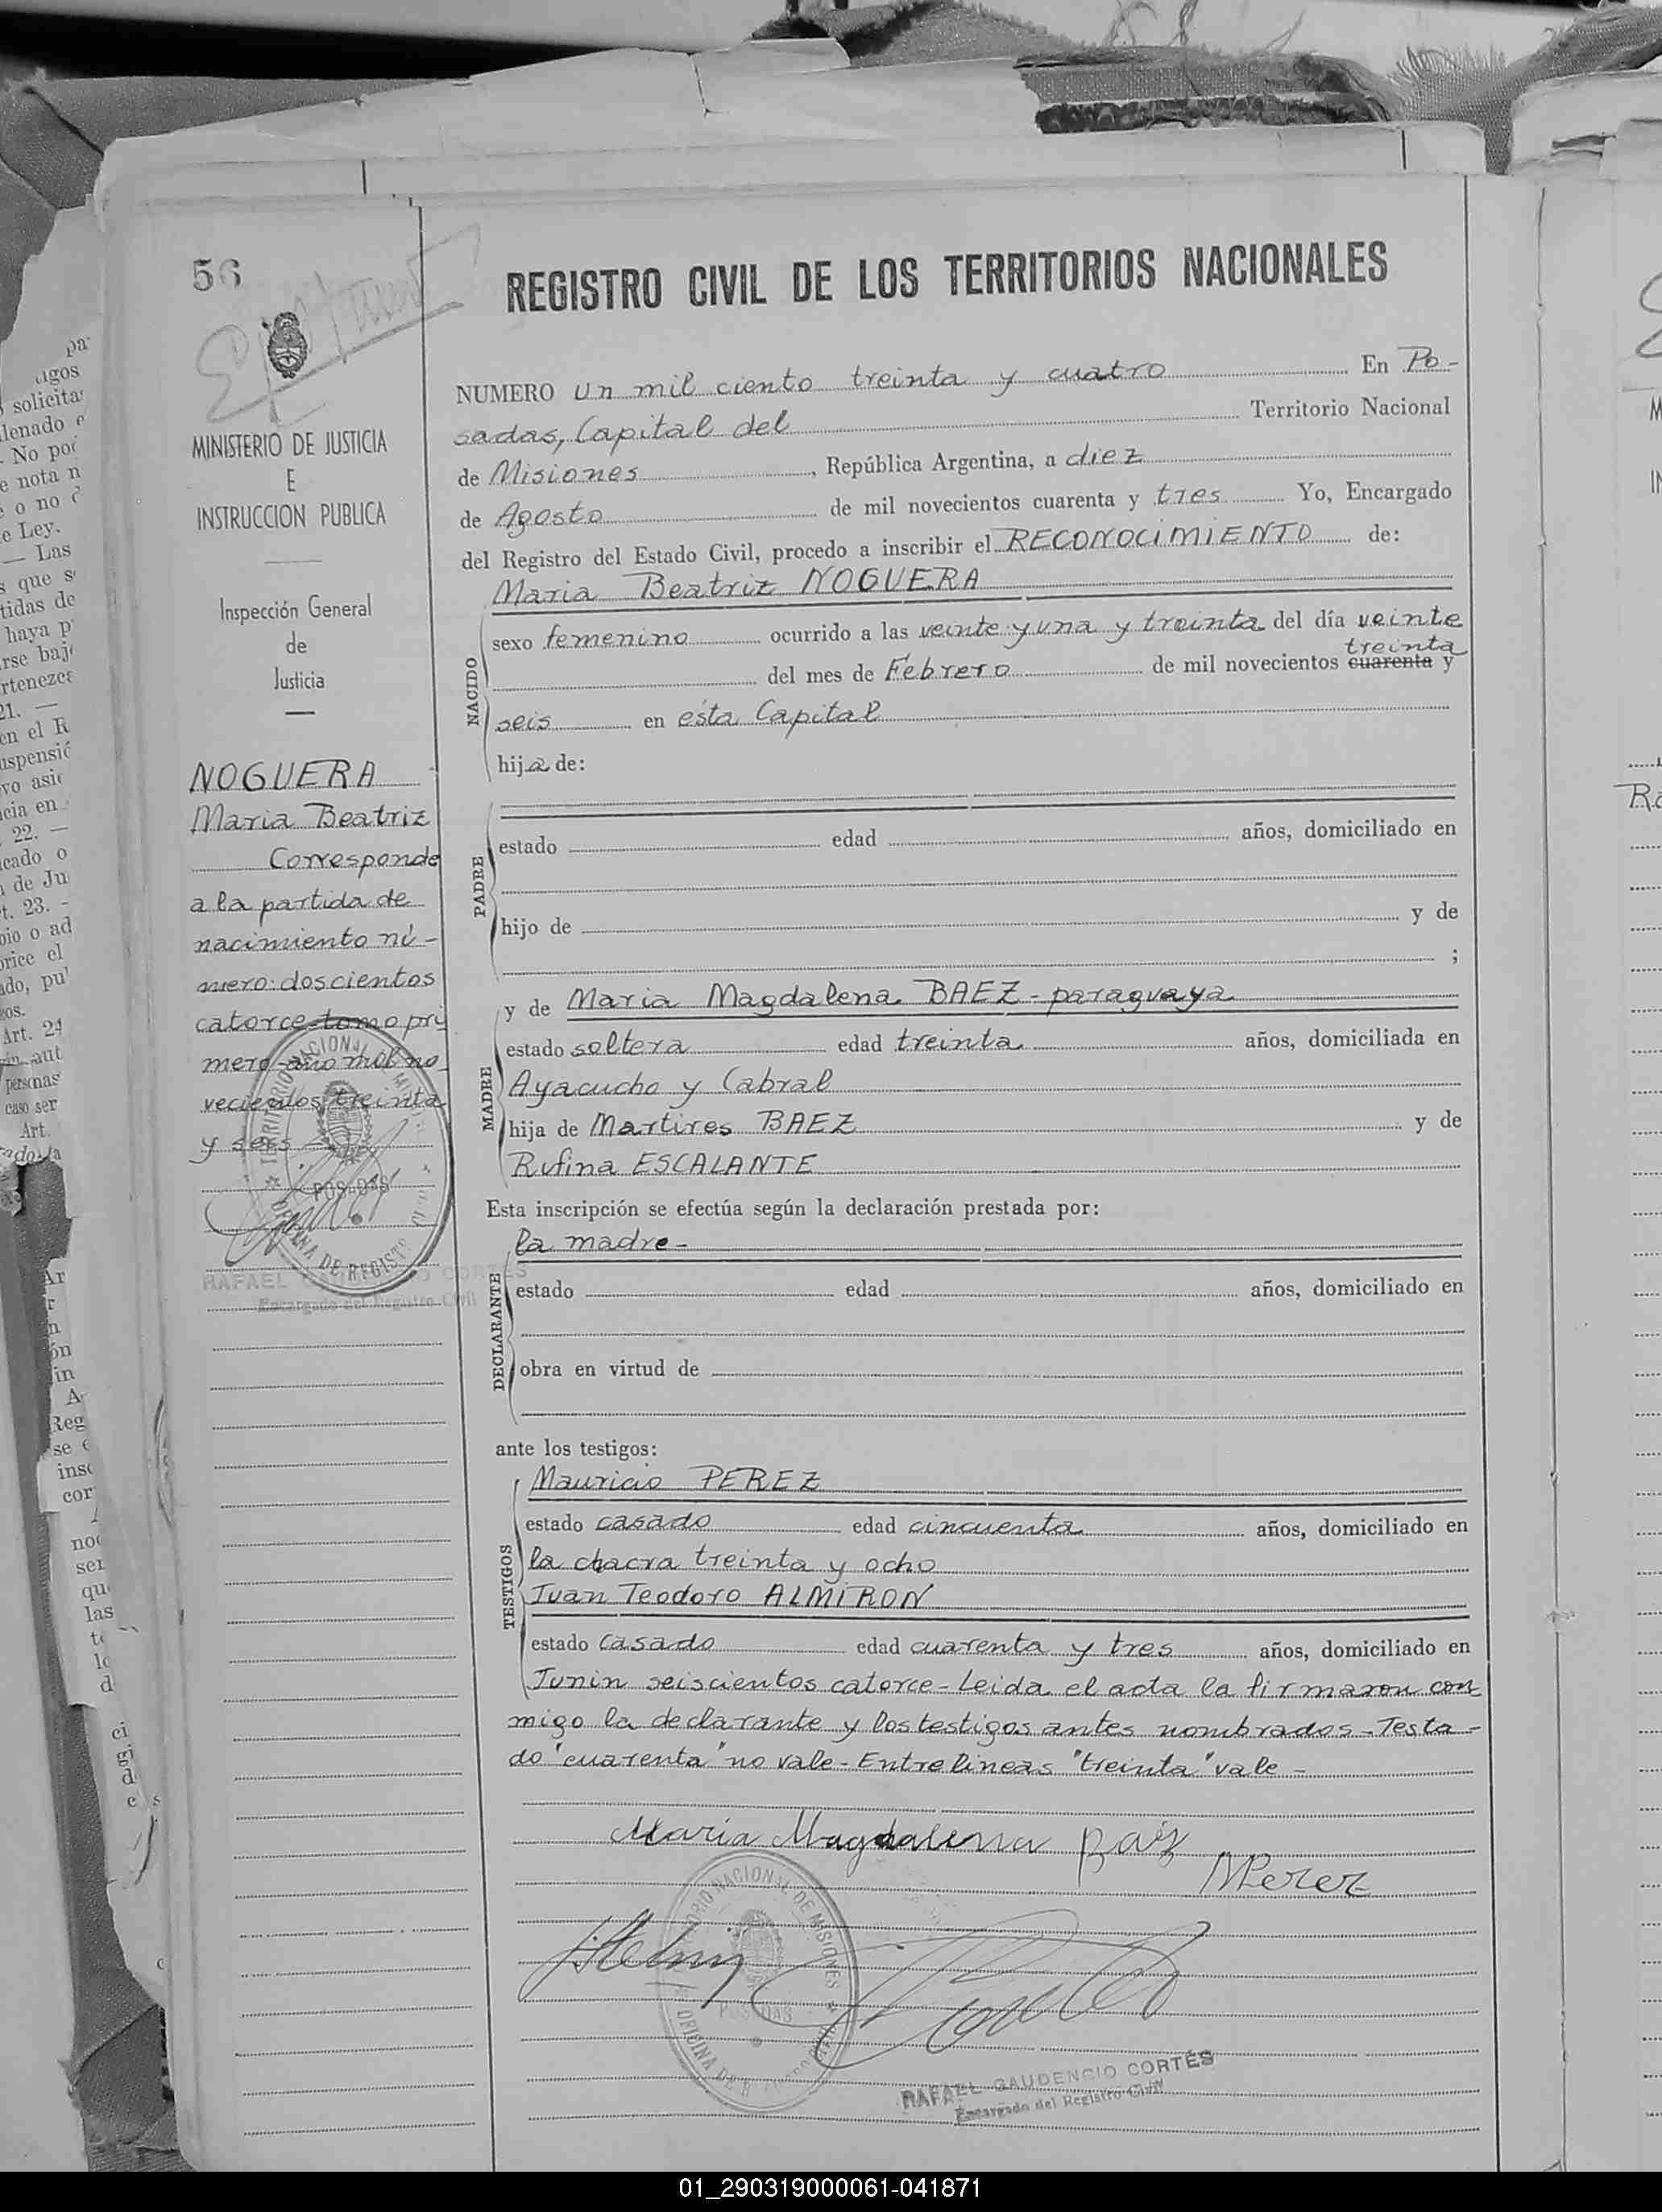 56
MINISTERIO DE JUSTICIA
E
INSTRUCCION PUBLICA
Inspección General
de
Justicia
NOGUERA
Maria Beatriz
Corresponde
a la partida de
nacimiento nú-
mero doscientos
catorce-tomo pri
mero-año mil no
vecientos treinta
y seis
POSADAS
RAFAEL GAUDENCIO CORTÉS
Encargado del Registro Civil
REGISTRO CIVIL DE LOS TERRITORIOS NACIONALES
NUMERO un mil ciento treinta y cuatro En Po-
sadas, Capital del Territorio Nacional
de Misiones, República Argentina, a diez
de Agosto de mil novecientos cuarenta y tres Yo, Encargado
del Registro del Estado Civil, procedo a inscribir el RECONOCIMIENTO de:
Maria Beatriz NOGUERA
NACIDO
sexo femenino ocurrido a las veinte y una y treinta del día veinte
treinta
del mes de Febrero de mil novecientos cuarenta y
seis en ésta Capital
hija de:
PADRE
estado edad años, domiciliado en
hijo de y de
;
MADRE
y de Maria Magdalena BAEZ-paraguaya
estado soltera edad treinta años, domiciliada en
Ayacucho y Cabral
hija de Martires BAEZ y de
Rufina ESCALANTE
Esta inscripción se efectúa según la declaración prestada por:
la madre-
DECLARANTE
estado edad años, domiciliado en
obra en virtud de
ante los testigos:
TESTIGOS
Mauricio PEREZ
estado casado edad cincuenta años, domiciliado en
la chacra treinta y ocho
Juan Teodoro ALMIRON
estado casado edad cuarenta y tres años, domiciliado en
Junin seiscientos catorce-Leida el acta la firmaron con
migo la declarante y los testigos antes nombrados-Testa-
do "cuarenta" no vale-Entrelineas "treinta" vale-
Maria Magdalena Baiz
MPerez
TERRITORIO NACIONAL DE MISIONES
POSADAS
RAFAEL GAUDENCIO CORTÉS
Encargado del Registro Civil
01_290319000061-041871